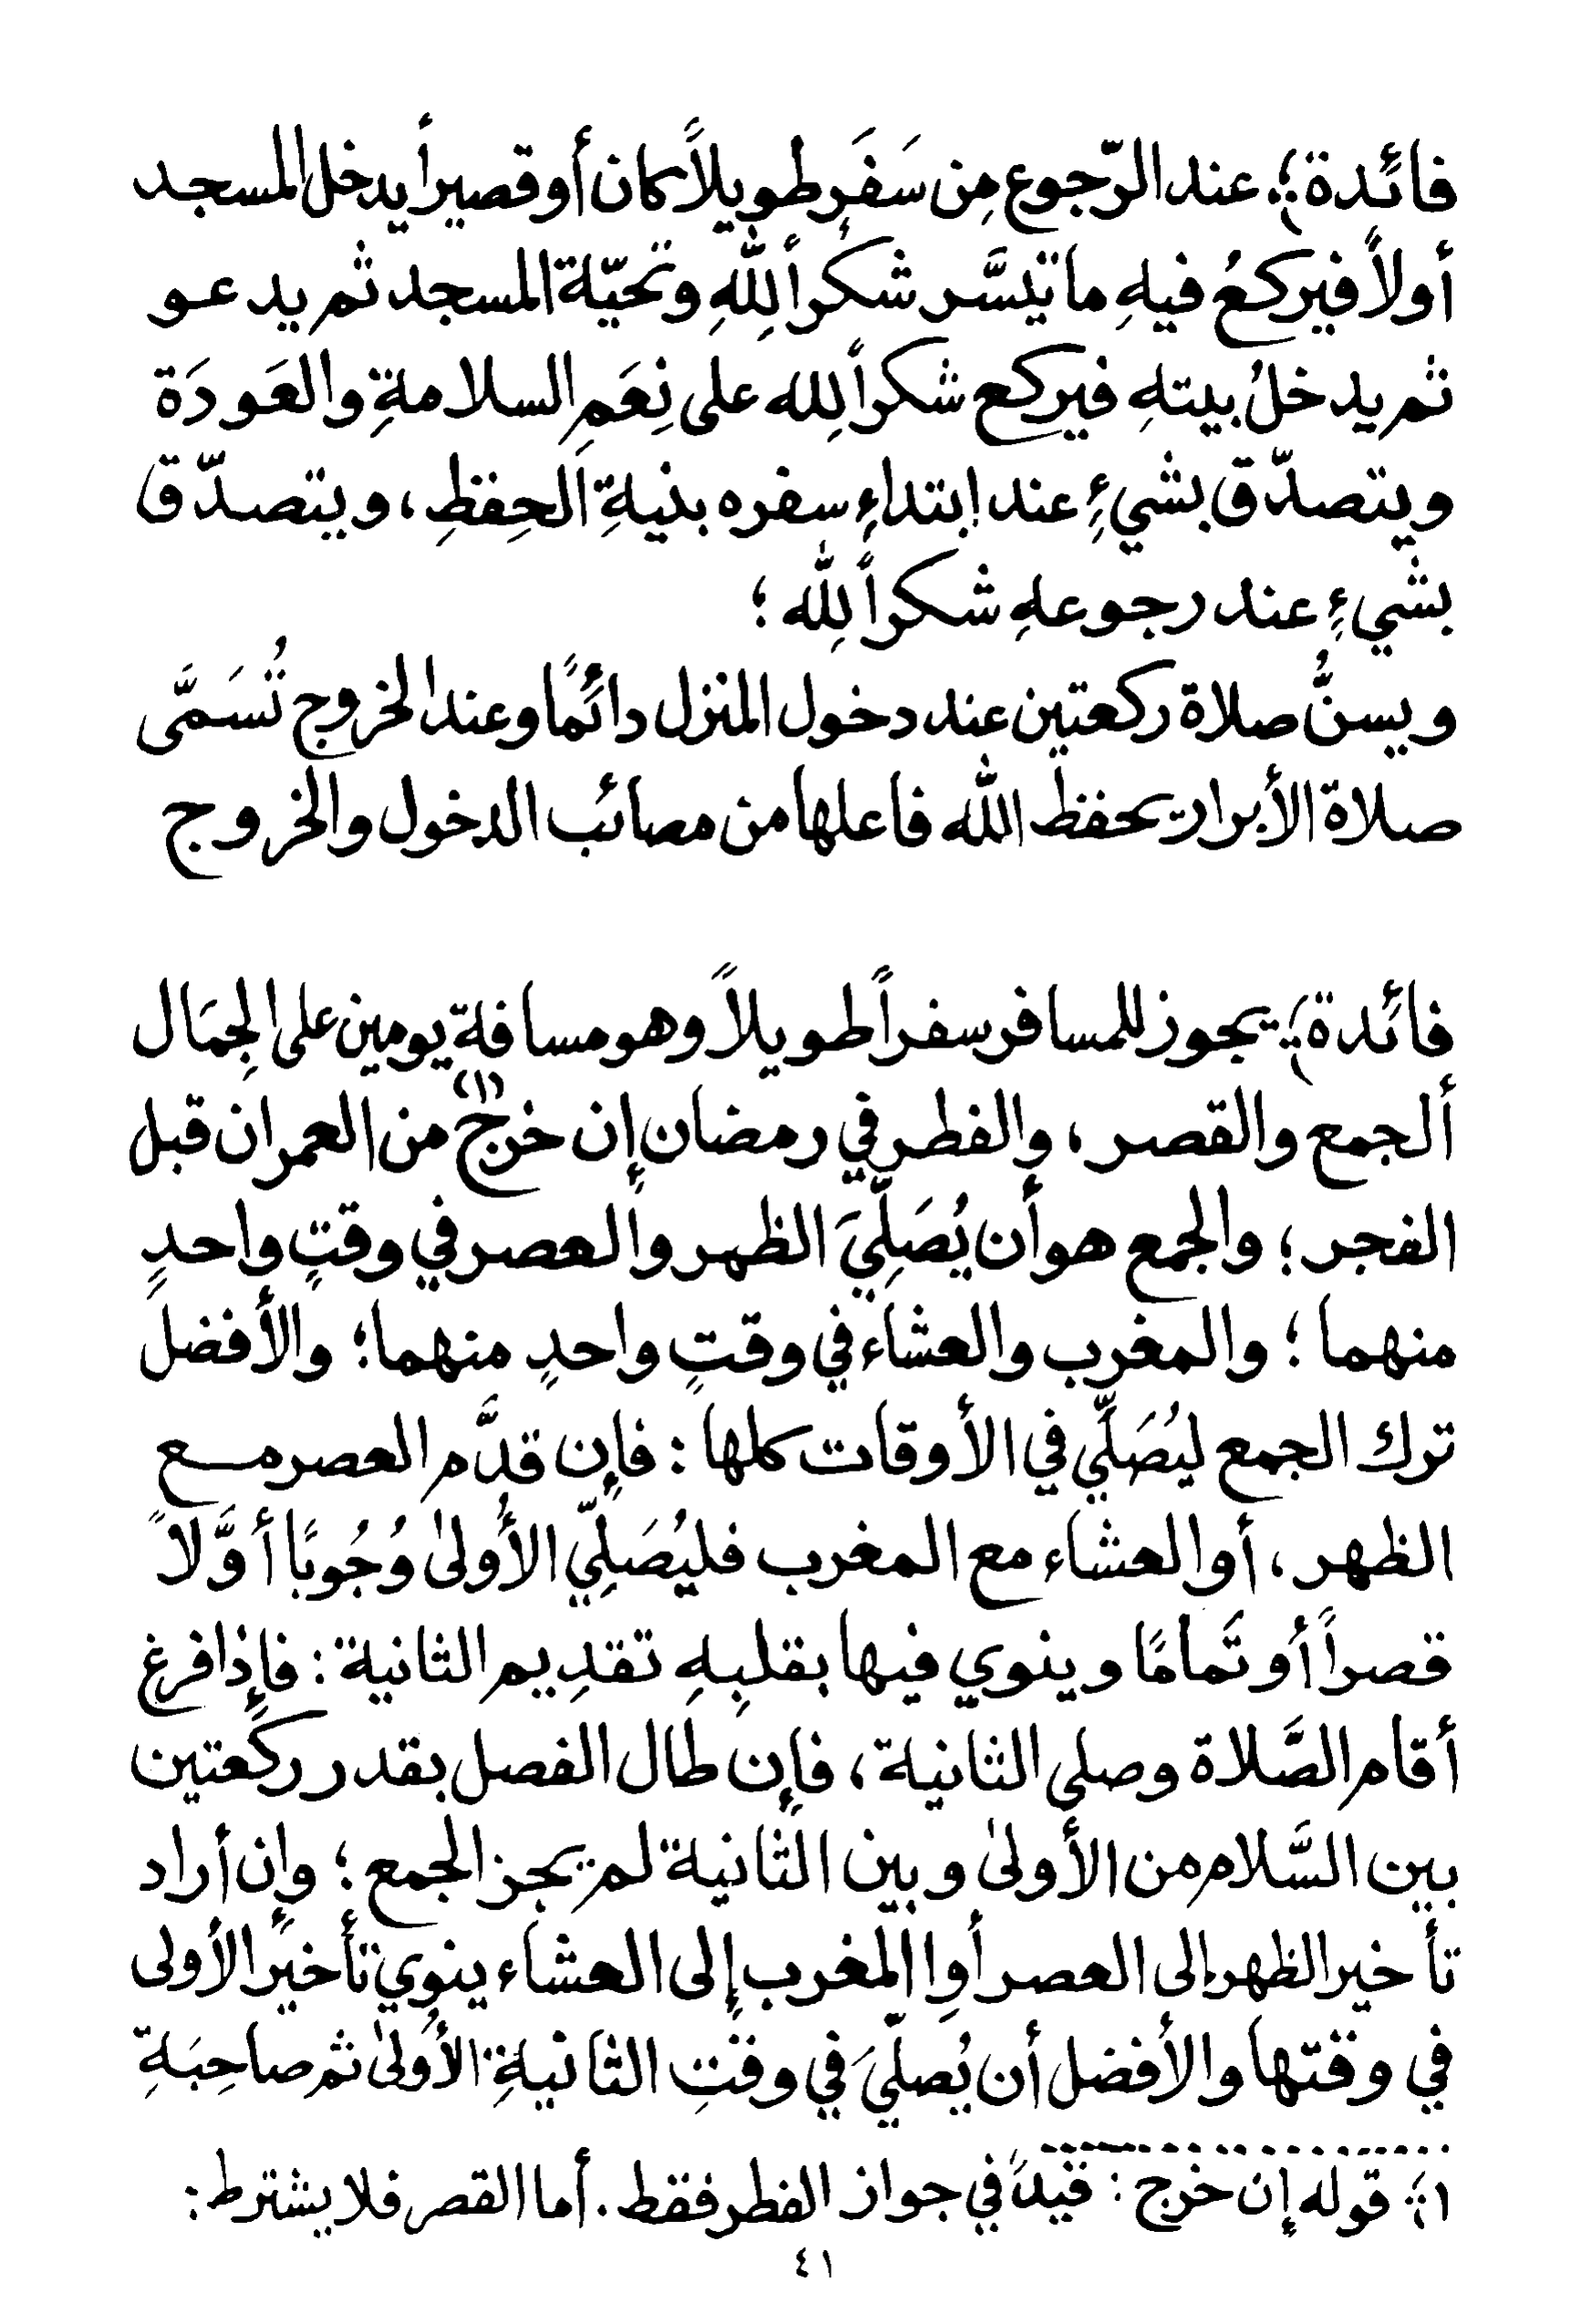 فائدة؛ عند الرّجوع مِن سَفَرٍ طويلاً كان أو قصيراً يدخل المسجد
أولاً فيركعُ فيهِ ما تيسَّر شكراً لِلّٰهِ وتحيّة المسجد ثم يدعو
ثم يدخلُ بيتهِ فيركع شكراً لِلله على نِعَمِ السلامةِ والعَودَة
ويتصدّق بشيءٍ عند إبتداءِ سفره بنيةِ الحِفظِ، ويتصدّق
بشيءٍ عند رجوعهِ شكراً لِلّٰه ؛
ويسنُّ صلاة ركعتين عند دخول المنزل دائمًا وعند الخروج تُسَمَّى
صلاة الأبرار يحفظ اللّٰه فاعلها من مصائب الدخول والخروج
فائدة؛ يجوز للمسافر سفراً طويلاً وهو مسافة يومين على الجِمَال
ألجمع والقصر، والفطر في رمضان إن خرج (١) من العمران قبل
الفجر؛ والجمع هو أن يُصَلِّيَ الظهر والعصر في وقتٍ واحدٍ
منهما؛ والمغرب والعشاء في وقتٍ واحدٍ منهما؛ والأفضل
ترك الجمع ليُصَلِّي في الأوقات كلها : فإن قدَّم العصر مع
الظهر، أو العشاء مع المغرب فليُصَلِّي الأُولىٰ وُجُوبًا أوَّلاً
قصراً أو تَمامًا وينوي فيها بقلبِهِ تقدِيم الثانية : فإذا فرغ
أقام الصَّلاة وصلى الثانية، فإن طال الفصل بقدر ركعتين
بين السَّلام من الأولىٰ وبين الثانية لم يجز الجمع؛ وإن أراد
تأخير الظهر إلى العصر أوِ المغرب إلى العشاء ينوي تأخير الأولى
في وقتها والأفضل أن يُصلّيَ في وقتِ الثانيةِ الأُولىٰ ثم صاحِبَةِ
١؛ قوله إن خرج : قيدٌ في جواز الفطر فقط . أما القصر فلا يشترط :
٤١